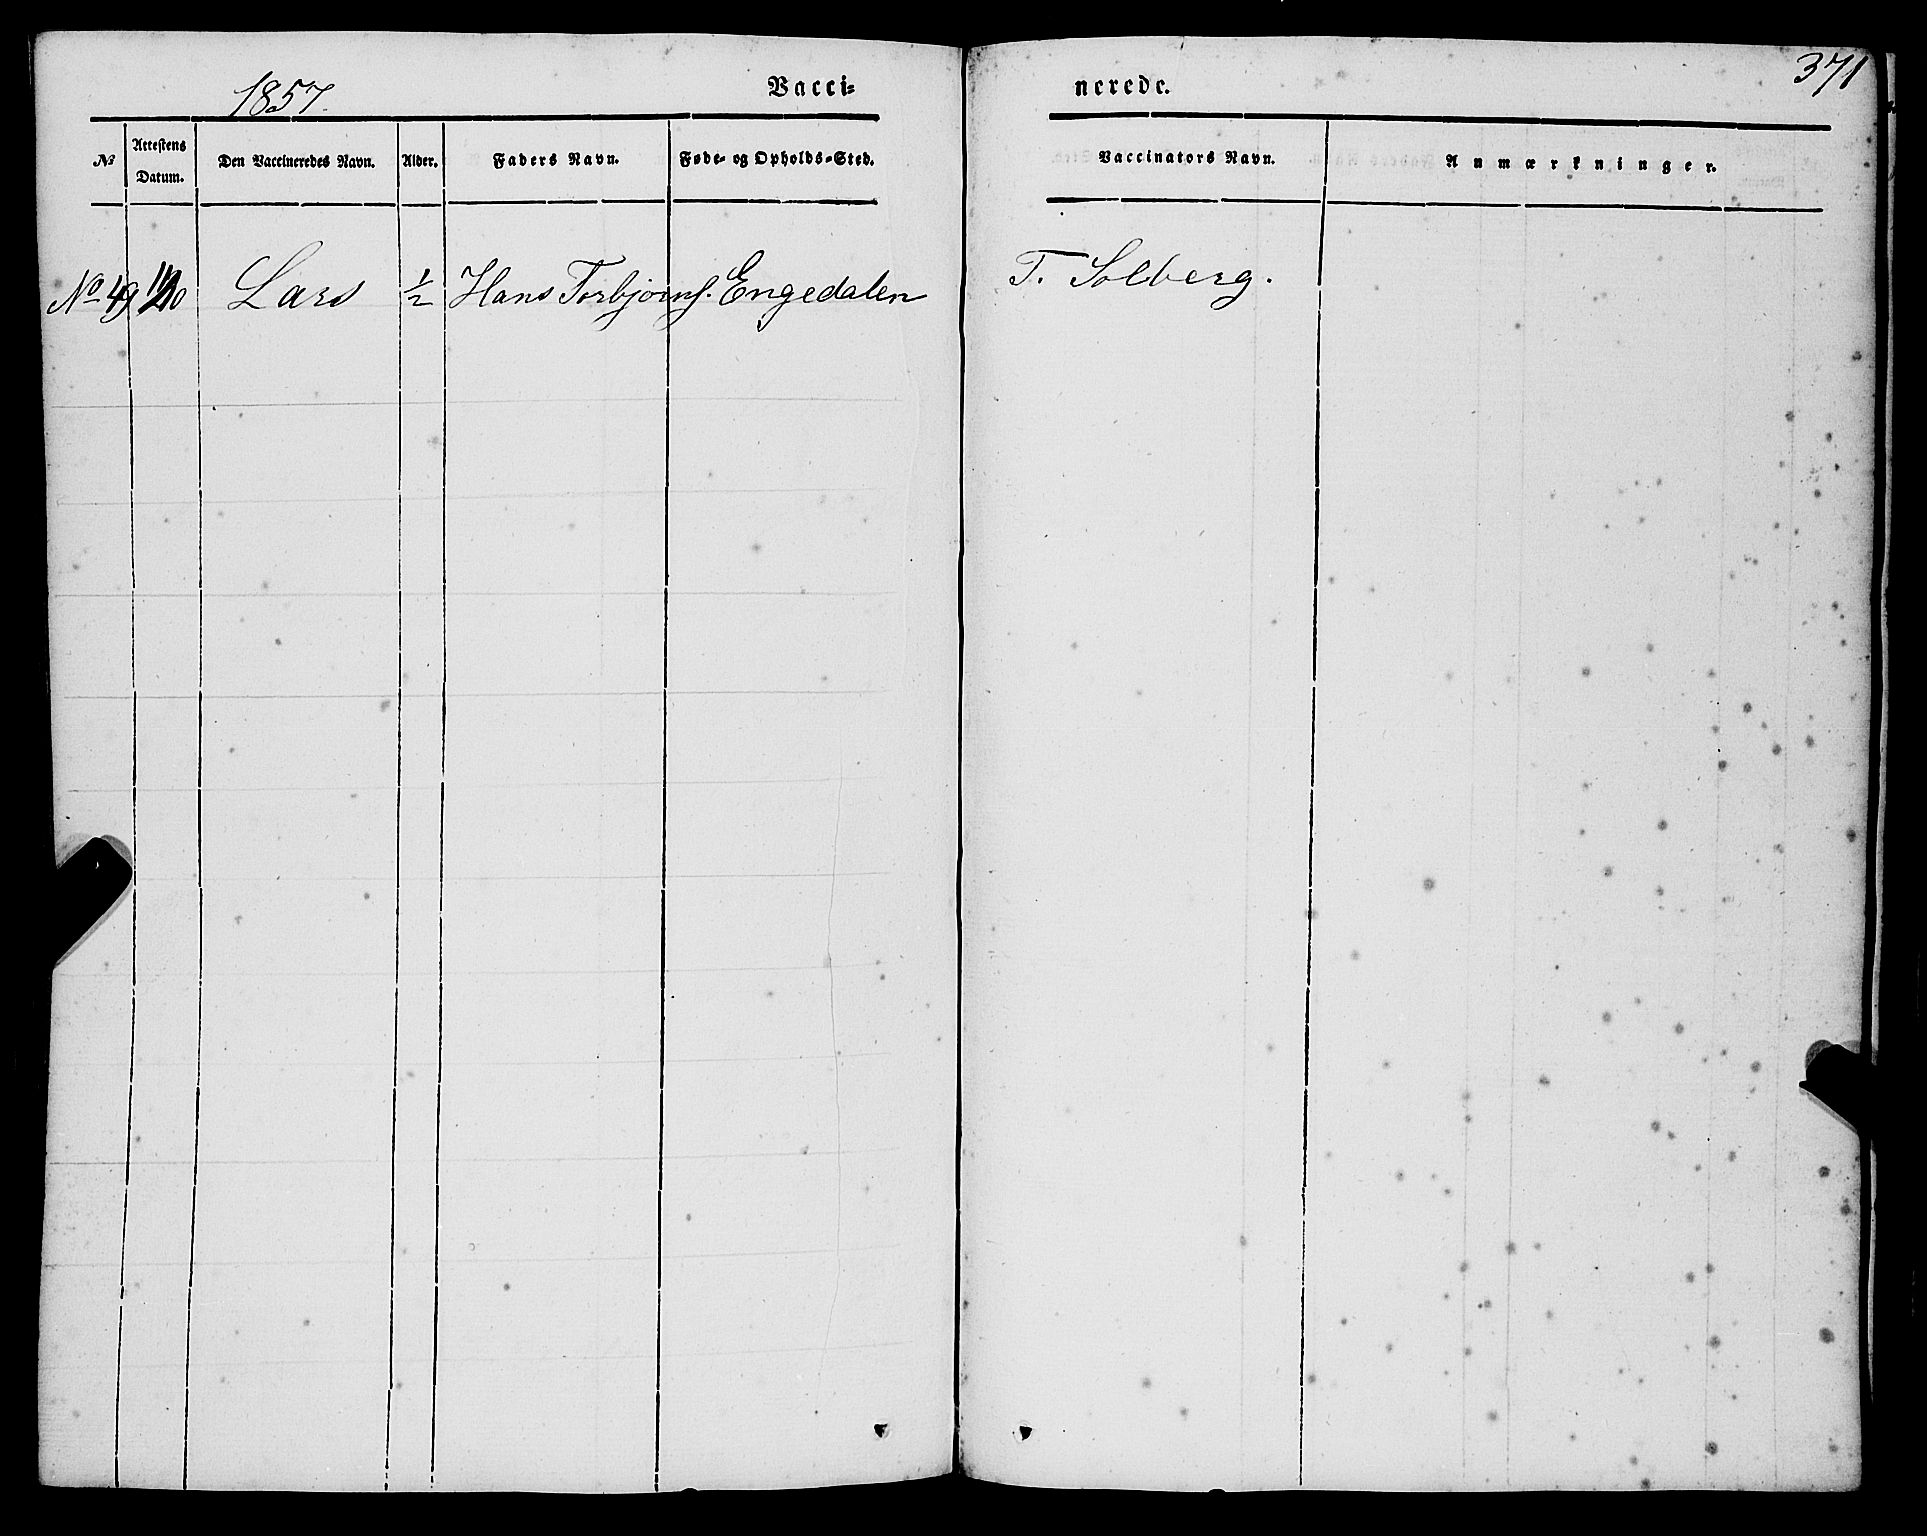 371
1857. Vaccinerede.
№ Attestens Datum. Den Vaccineredes Navn. Alder. Faders Navn. Føde- og Opholds-Sted. Vaccinators Navn. Anmærkninger.
No 49 Lars ½ Hans Torbjørns. Engedalen T. Solberg.